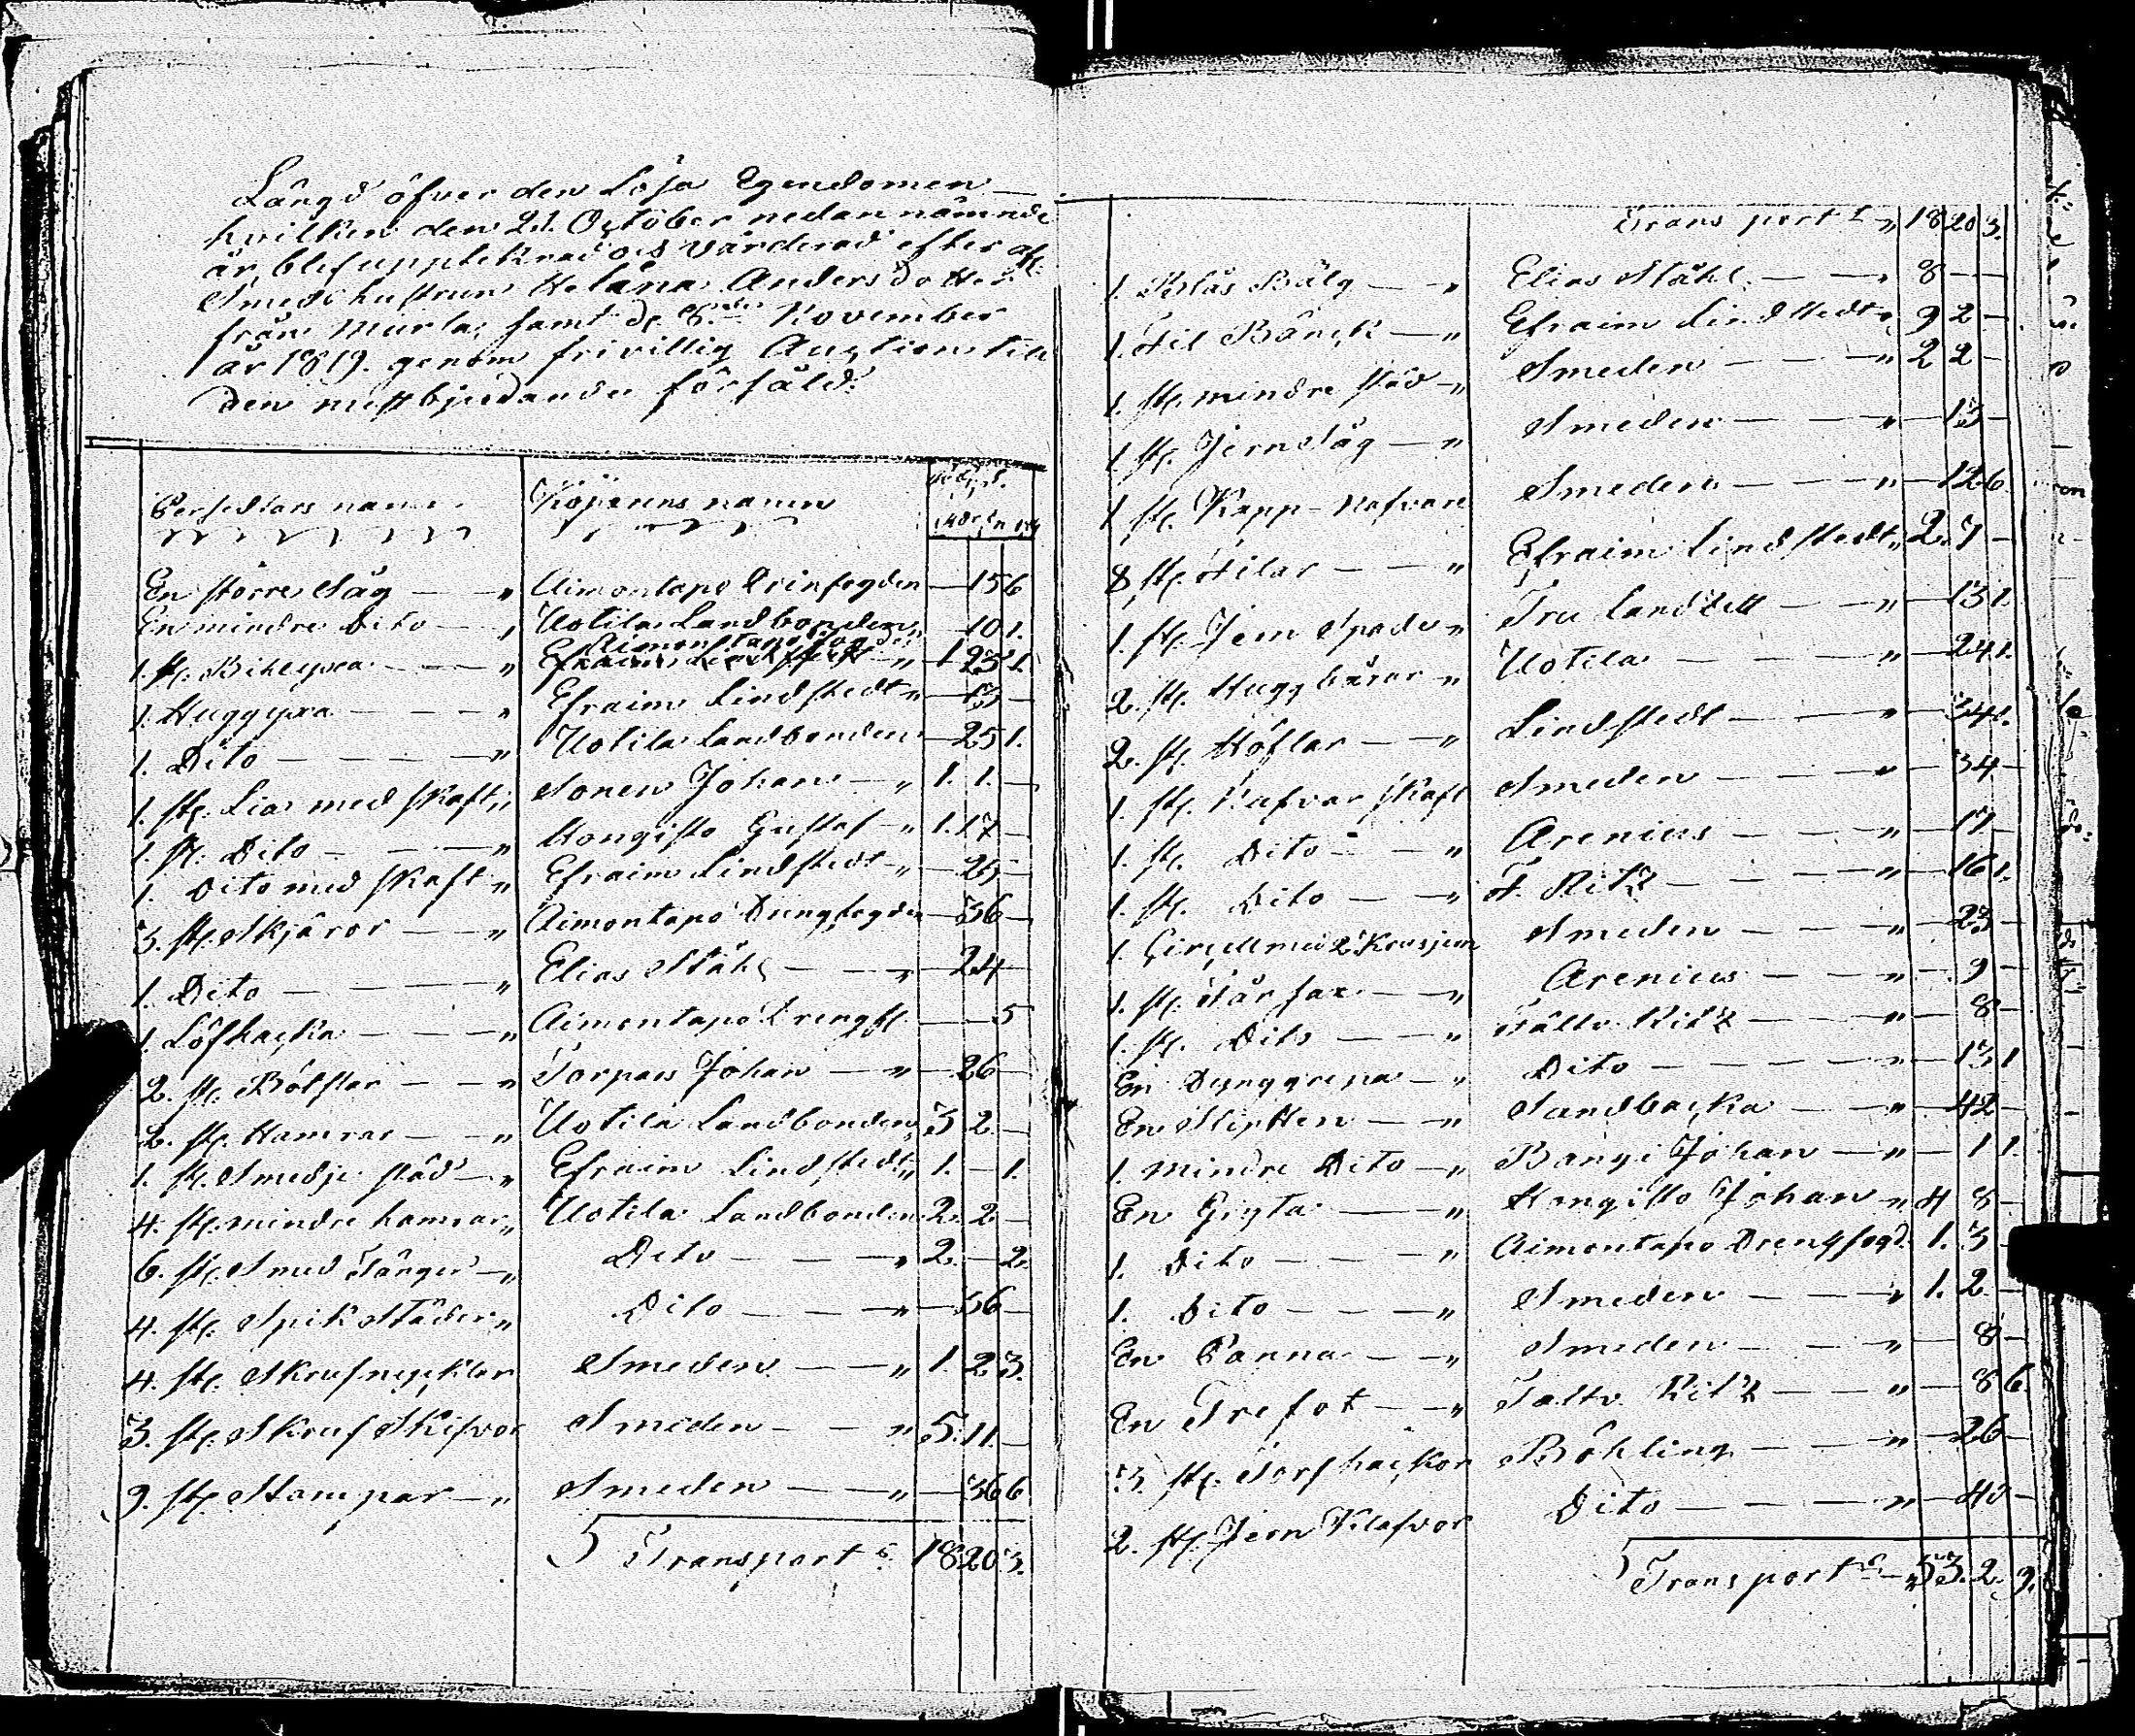 Längd öfver den Lösa Egendomen
hvilken den 21. October nedannämnde
år, blef uppteknad och värderad efter afl:
Smeds hustrun Heläna Andersdotter
från Murla, samt d. 8.de November
år 1819. genom frivillig Auction till
den mestbjudande försåld:
Persedlars namn. Köparens namn
En större Såg — " Aimontapo — 15 6
En mindre Dito — " Uotila Landbonden — 10 1.
Aimontapo fogden
1. st. Bileyxa — — " Efraim Lindstedt — " 1 25 1.
1. Huggyxa — — — " Efraim Lindstedt " — 13 —
1. Dito — — — — " Uotila Landbonden — 25 1.
1. st. Lia med skaft " Sonen Johan — " 1. 1. —
1. st. Dito — — — " Hongisto Gustaf — " 1. 17 —
1. Dito med skaft " Efraim Lindstedt — " — 25 —
3. st. Skjäror — — " Aimontapo Drengfogden — 36 —
1. Dito — — — — " Elias Ståhl — — " — 24 —
1. Löfhacka — — — " Aimontapo Drengf. — — 5
2. st. Bötslar — — " Torpars Johan — " — 26 —
2. st. Hamrar — — " Uotila Landbonden 3 2 —
1. st. Smedje städ — " Efraim Lindstedt " 1. — 1.
4. st. mindre hamrar " Uotila Landbonden 2. 2 —
6. st. Smed Tänger — " Dito — — — " 2. — 2.
4. st. Spik Städer " Dito — — — " — 36 —
4. st. Skrufnycklor Smeden — — " 1. 2 3.
3. st. Skruf Skifvor Smeden — — " 5. 11. —
9. st. Stampar — " Smeden — — " — 36 6
Transport s. 18 20 3.
Transport " 18 20 3.
1. Blås Bälg — — " Elias Ståhl — — " 8 — —
1. Fil Bänck — " Efraim Lindstedt " 9 2 —
1. st. mindre städ — " Smeden — — — " 2 2 —
1 st. Jernsåg — " Smeden — — — " — 13 —
1 st. Rapp-Nafvare Smeden — — — " — 12 6.
8. st. Filar — — — " Efraim Lindstedt " 2. 7 —
1. st. Jern Spade " Fru Landzell — — " — 13 1.
2. st. Huggbårar " Uotila — — — " — 24 1.
2. st. Höflar — — " Lindstedt — — " — 34 1.
1. st. Nafvar skaft Smeden — — — " — 34 —
1. st. Dito — — " Arenius — — — " — 17 —
1. st. Dito — — " F. Ritz — — — — " — 16 1.
1. Cirkell med 2 Smeden — — — " — 23 —
1. st. Fårsax — — " Arenius — — — " — 9 —
1. st. Dito — — " Fältv. Ritz — — — " — 8 —
En Dynggrepa — " Dito — — — — " — 13 1
En Slipsten — — " Sandbacka — — " — 42 —
1. mindre Dito — " Bångi Johan — " — 1 1.
En Gryta — — " Hongisto Johan " 4 8 —
1. Dito — — — " Aimontapo Drengfogd. 1. 3 —
1. Dito — — — " Smeden — — — " 1. 2 —
En Panna — — " Smeden — — — " — 8 —
En Trefot — — " Fältv. Ritz — — — " — 8 6.
3. st. Torfhackor Böhling — — — " — 26 —
2. st. Jern Klafvor Dito — — — — " — 40 —
Transport s. — " 33. 2. 9.